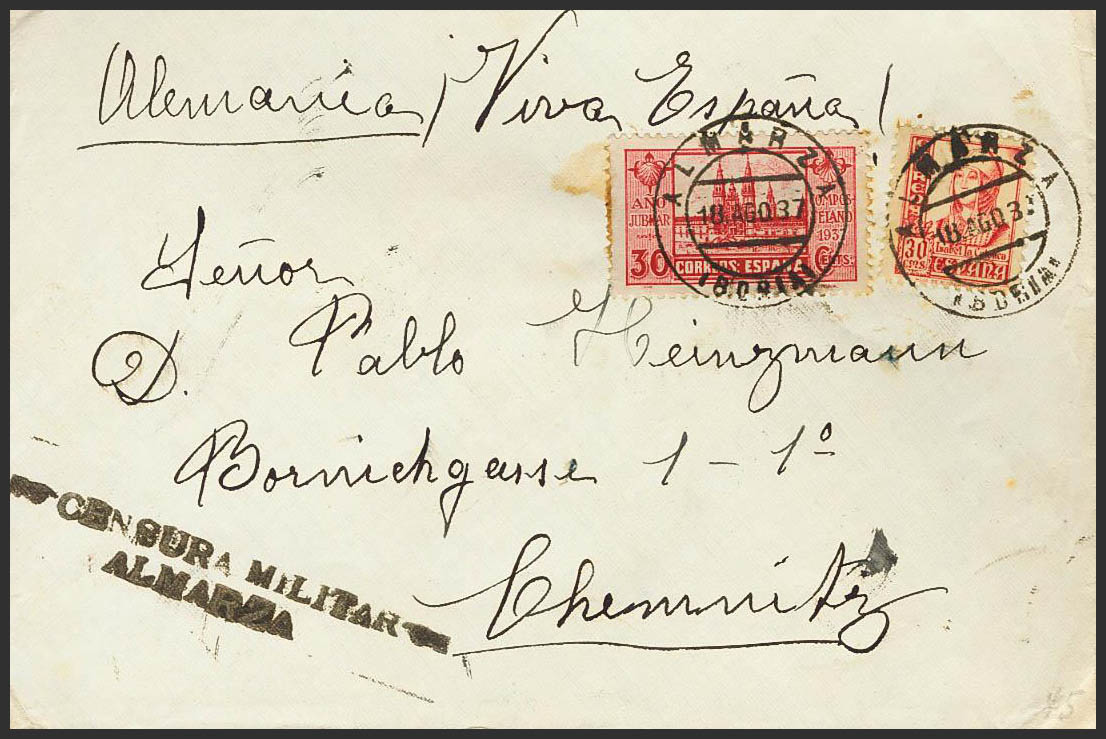 Alemania ¡Viva España!
AÑO JUBILAR COMPOSTELANO 1937
30 CORREOS ESPAÑA Cts.
CORREOS
30 CTS.
Isabel la Católica
ESPAÑA
ALMARZA
18 AGO 37
(SORIA)
ALMARZA
18 AGO 37
(SORIA)
Señor
D. Pablo Heinzmann
Bornichgasse 1 - 1º
Chemnitz
CENSURA MILITAR
ALMARZA
45